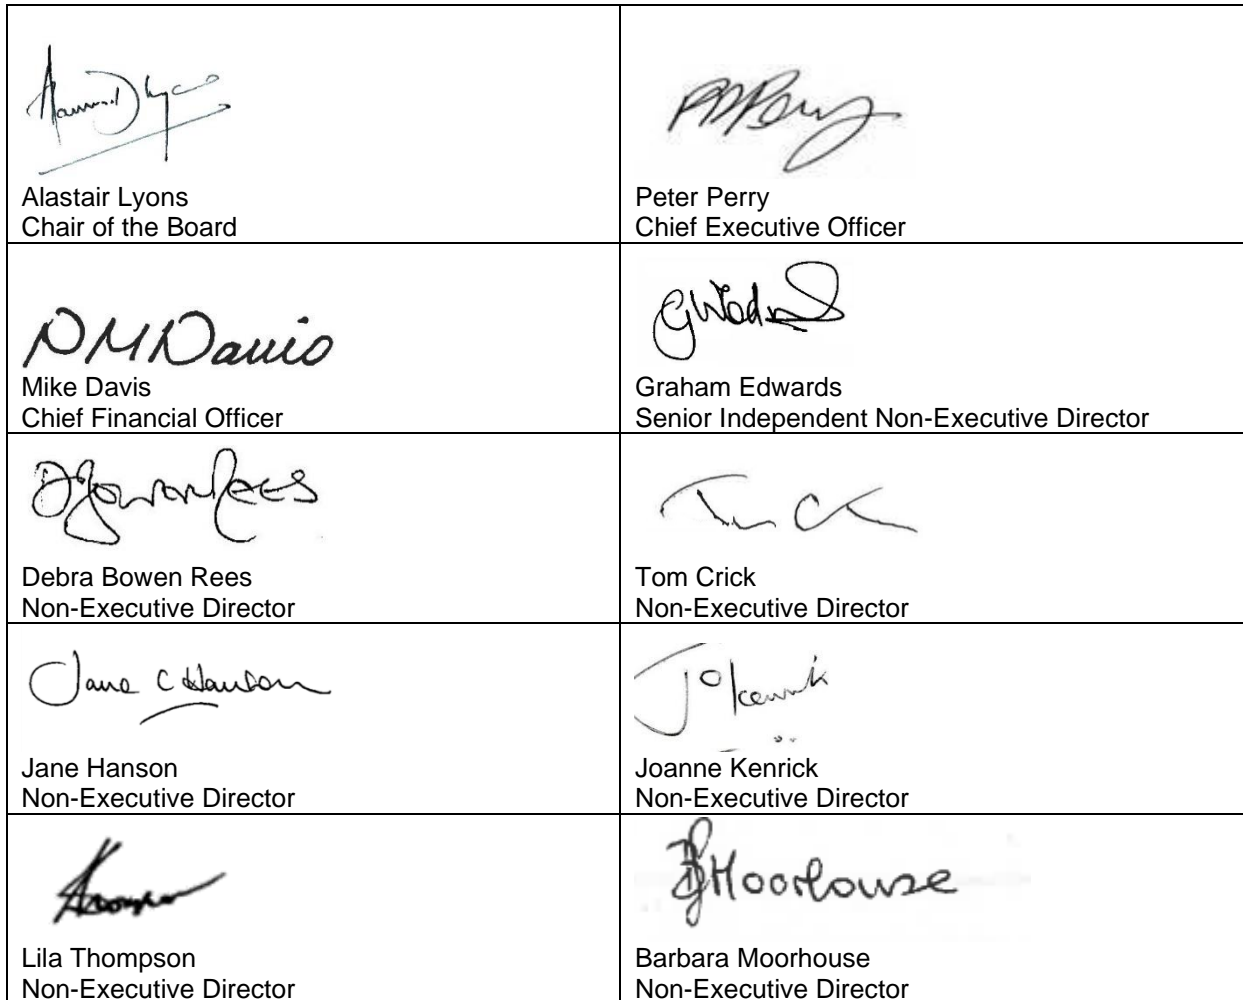 Alastair Lyons
Chair of the Board
Peter Perry
Chief Executive Officer
PMDavis
Mike Davis
Chief Financial Officer
Graham Edwards
Senior Independent Non-Executive Director
DJBowenRees
Debra Bowen Rees
Non-Executive Director
Tom Crick
Non-Executive Director
Jane C Hanson
Jane Hanson
Non-Executive Director
Jo Kenrick
Joanne Kenrick
Non-Executive Director
Lila Thompson
Non-Executive Director
Moorhouse
Barbara Moorhouse
Non-Executive Director